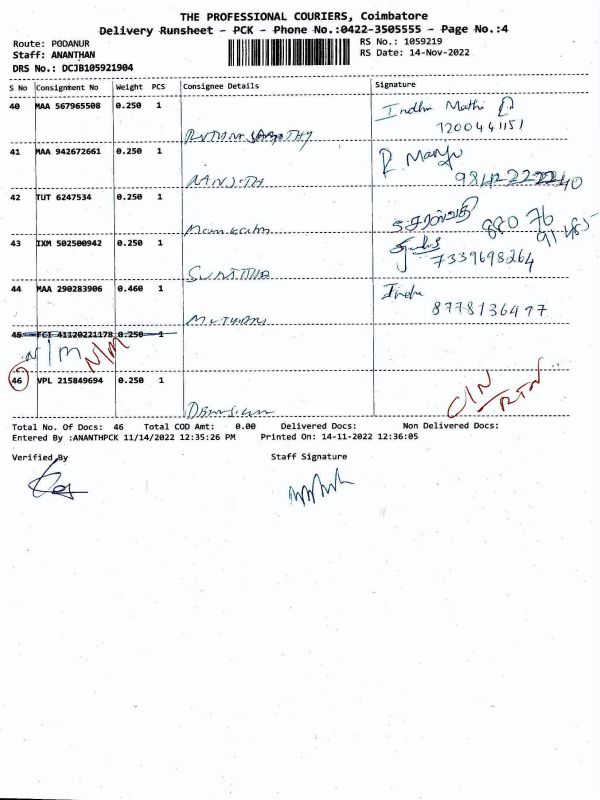 THE PROFESSIONAL COURIERS, Coimbatore
Delivery Runsheet - PCK - Phone No.:0422-3505555 - Page No.:4
Route: PODANUR
Staff: ANANTHAN
DRS No.: DCJB105921904
RS No.: 1059219
RS Date: 14-Nov-2022
S No Consignment No Weight PCS Consignee Details Signature
40 MAA 567965508 0.250 1
Indhu Mathi
1200441151
41 MAA 942672661 0.250 1
R. Manju
RANJITH
42 TUT 6247534 0.250 1
சரஸ்வதி 880 76
43 IXM 502500942 0.250 1
7339698264
44 MAA 290283906 0.460 1 Indu
8778136477
45 FCT 41120221178 0.250 1
N/M N/M
46 VPL 215849694 0.250 1
C/N
RTN
Total No. Of Docs: 46 Total COD Amt: 0.00 Delivered Docs: Non Delivered Docs:
Entered By :ANANTHPCK 11/14/2022 12:35:26 PM Printed On: 14-11-2022 12:36:05
Verified By Staff Signature